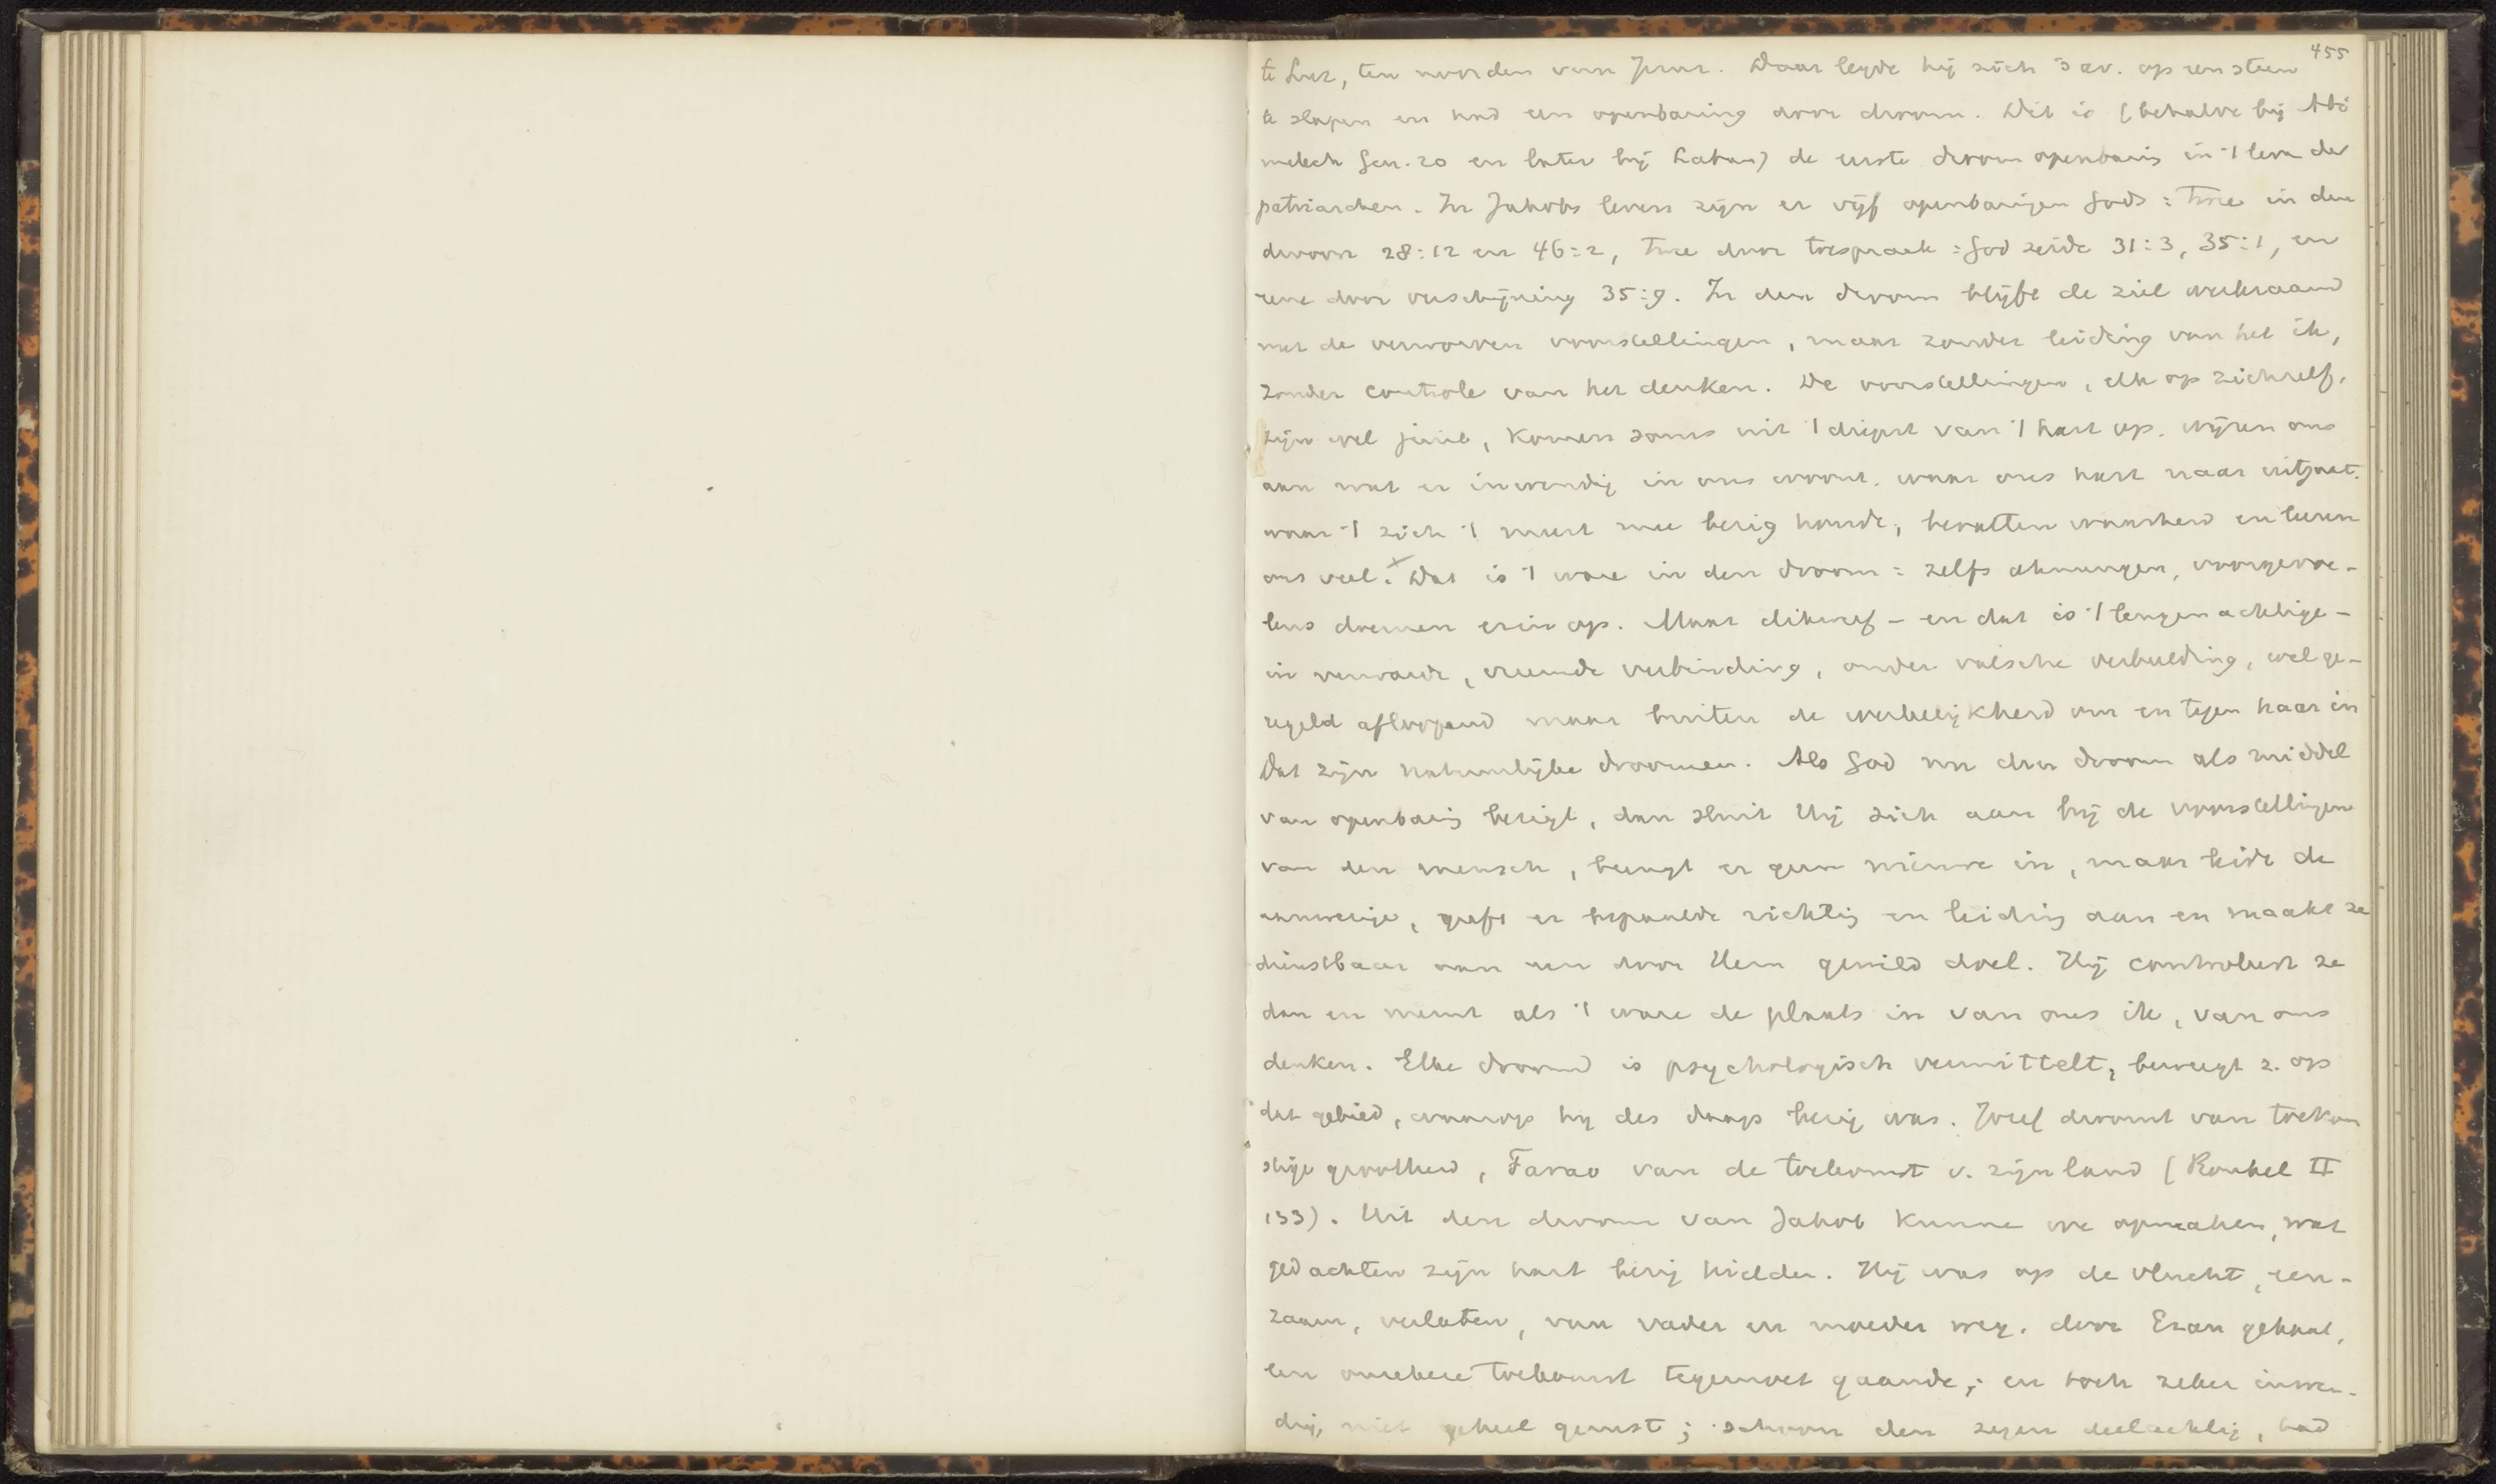 455
te Luz, ten noorden van Jeruz. Daar legde hij zich 's av. op een steen
te slapen en had een openbaring door droom. Dit is (behalve bij Abi
melech Gen. 20 en later bij Laban) de eerste droomopenbaring in 't leven der
patriarchen. In Jakobs leven zijn er vijf openbaringen Gods: twee in den
droom 28:12 en 46:2, twee door toespraak: God zeide 31:3, 35:1, en
eene door verschijning 35:9. In den droom blijft de ziel werkzaam
met de verworven voorstellingen, maar zonder leiding van het ik,
zonder controle van het denken. De voorstellingen, elk op zichzelf,
zijn wel juist, komen soms uit 't diepst van 't hart op, wijzen ons
aan wat er inwendig in ons woont, waar ons hart naar uitgaat,
waar 't zich 't meest mee bezig houdt, bevatten waarheid en leeren
ons veel. Dat is 't ware in den droom: zelfs ahnungen, voorgevoe-
lens doemen erin op. Maar dikwijls - en dat is 't leugenachtige -
in verwarde, vreemde verbinding, onder valsche verbeelding, wel ge-
regeld afloopend maar buiten de werkelijkheid om en tegen haar in
Dat zijn natuurlijke droomen. Als God nu den droom als middel
van openbaring bezigt, dan sluit Hij zich aan bij de voorstellingen
van den mensch, brengt er geen nieuwe in, maar leidt de
aanwezige, geeft er bepaalde richting en leiding aan en maakt ze
dienstbaar aan een door Hem gewild doel. Hij controleert ze
dan en neemt als 't ware de plaats in van ons ik, van ons
denken. Elke droom is psychologisch vermittelt, beweegt z. op
dat gebied, waarop hij des daags bezig was. Jozef droomt van toekom
stige grootheid, Farao van de toekomst v. zijn land (Rouhel II
133). Uit den droom van Jakob kunnen we opmaken, wat
gedachten zijn hart bezig hielden. Hij was op de vlucht, een-
zaam, verlaten, van vader en moeder weg, door Ezau gehaat,
een onzekere toekomst tegemoet gaande; en toch zeker inwen-
dig, niet geheel gerust; schoon den zegen deelachtig, had